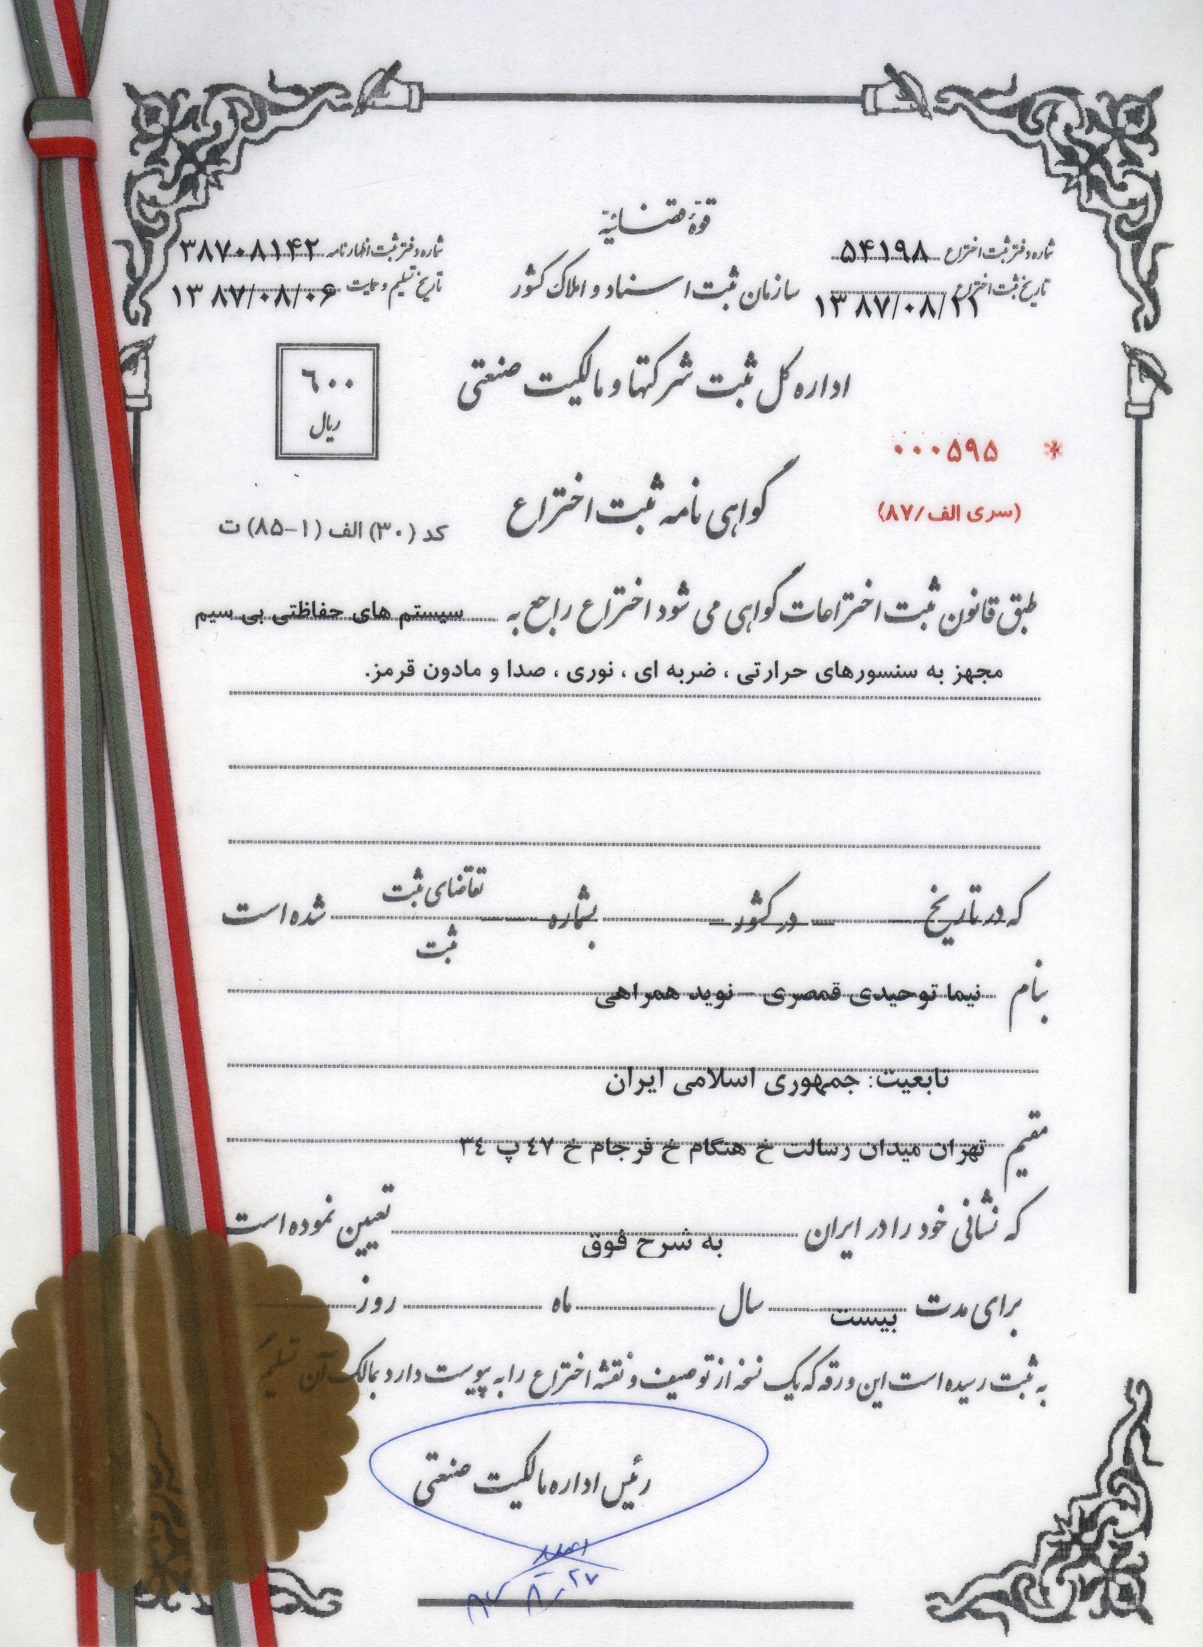 قوهٔ قضائیه
شماره دفتر ثبت اختراع ۵۴۱۹۸
شماره دفتر ثبت اظهارنامه ۳۸۷۰۸۱۴۲
سازمان ثبت اسناد و املاک کشور
تاریخ ثبت اختراع ۱۳۸۷/۰۸/۲۲
تاریخ تسلیم و حمایت ۱۳۸۷/۰۸/۰۶
اداره کل ثبت شرکتها و مالکیت صنعتی
۶۰۰
ریال
* ۰۰۰۵۹۵
(سری الف/۸۷)
گواهی نامه ثبت اختراع
کد (۳۰) الف (۱-۸۵) ت
طبق قانون ثبت اختراعات گواهی می شود اختراع راجع به سیستم های حفاظتی بی سیم
مجهز به سنسورهای حرارتی ، ضربه ای ، نوری ، صدا و مادون قرمز.
که در تاریخ — در کشور — بشماره — تقاضای ثبت شده است
ثبت
بنام نیما توحیدی قمصری – نوید همراهی
تابعیت: جمهوری اسلامی ایران
مقیم تهران میدان رسالت خ هنگام خ فرجام خ ٤٧ پ ٣٤
که نشانی خود را در ایران به شرح فوق تعیین نموده است
برای مدت بیست سال ماه روز
به ثبت رسیده است این ورقه که یک نسخه از توصیف و نقشه اختراع را به پیوست دارد بمالک آن تسلیم
رئیس اداره مالکیت صنعتی